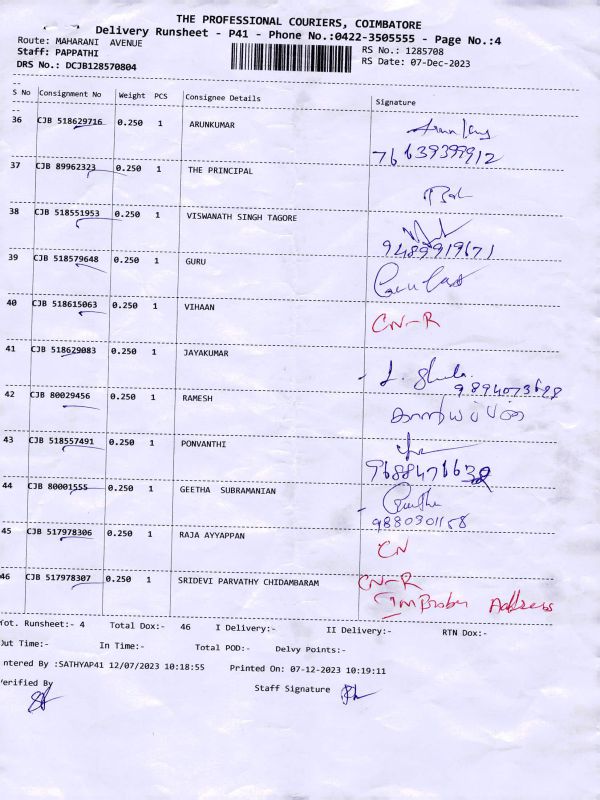 THE PROFESSIONAL COURIERS, COIMBATORE
Delivery Runsheet - P41 - Phone No.:0422-3505555 - Page No.:4
Route: MAHARANI AVENUE
RS No.: 1285708
Staff: PAPPATHI
RS Date: 07-Dec-2023
DRS No.: DCJB128570804
S No Consignment No Weight PCS Consignee Details Signature
36 CJB 518629716 0.250 1 ARUNKUMAR
37 CJB 89962323 0.250 1 THE PRINCIPAL
38 CJB 518551953 0.250 1 VISWANATH SINGH TAGORE
9489919671
39 CJB 518579648 0.250 1 GURU
40 CJB 518615063 0.250 1 VIHAAN
CN-R
41 CJB 518629083 0.250 1 JAYAKUMAR
42 CJB 80029456 0.250 1 RAMESH
43 CJB 518557491 1 PONVANTHI
44 CJB 80001555 0.250 1 GEETHA SUBRAMANIAN
Geetha
9880301158
45 CJB 517978306 0.250 1 RAJA AYYAPPAN
CN
46 CJB 517978307 0.250 1 SRIDEVI PARVATHY CHIDAMBARAM
CN-R
Address
Tot. Runsheet:- 4 Total Dox:- 46 I Delivery:- II Delivery:- RTN Dox:-
Out Time:- In Time:- Total POD:- Delvy Points:-
ntered By :SATHYAP41 12/07/2023 10:18:55 Printed On: 07-12-2023 10:19:11
erified By
Staff Signature